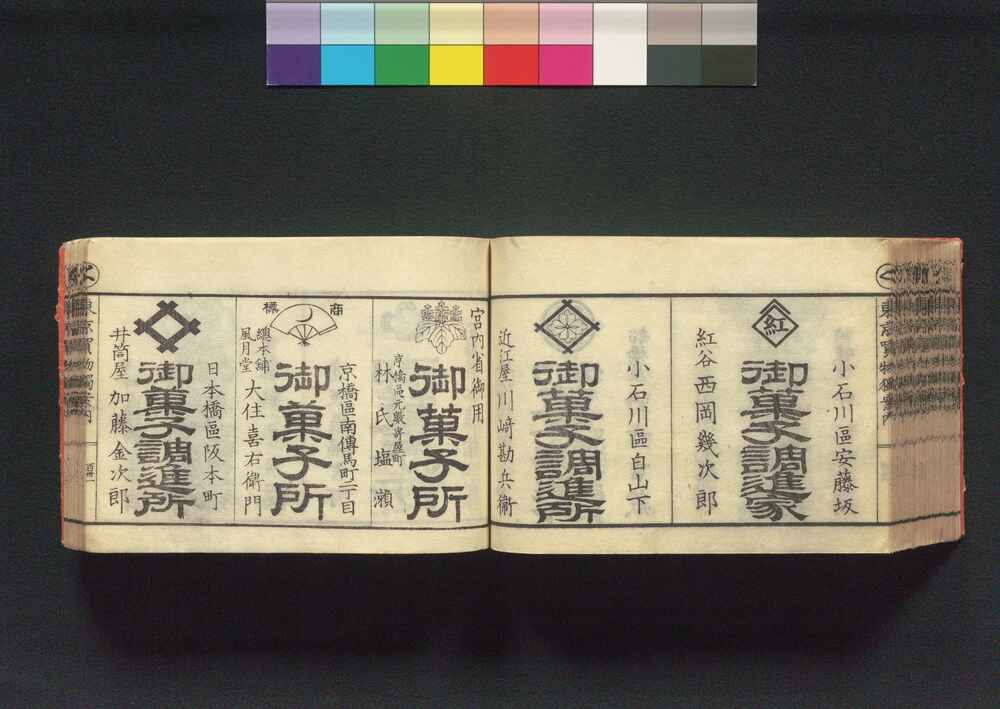 東京買物獨案内
小石川區安藤坂
紅
御菓子調進家
紅谷西岡幾次郎
小石川區白山下
御菓子調進所
近江屋川﨑勘兵衞
宮内省御用
御菓子所
京橋區元數寄屋町
林氏塩瀬
京橋區南傳馬町二丁目
商標
御菓子所
總本舗
風月堂
大住喜右衛門
日本橋區阪本町
御菓子調進所
井筒屋加藤金次郎
東京買物獨案内